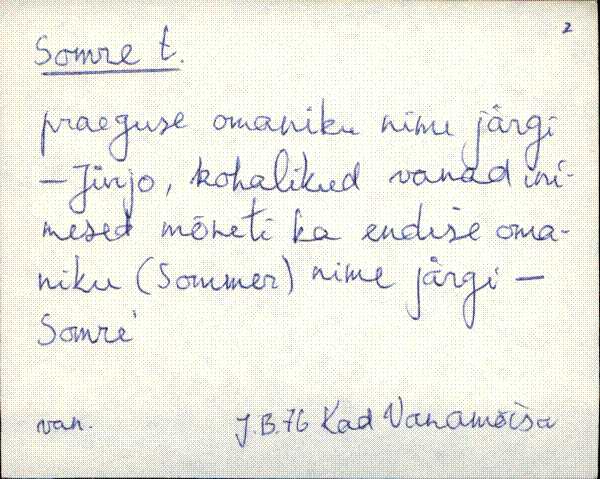 2
Somre t.
praeguse omaniku nime järgi
– Jürjo, kohalikud vanad ini-
mesed mõneti ka endise oma-
niku (Sommer) nime järgi –
Somre'
van. J.B.76 Kad Vanamõisa